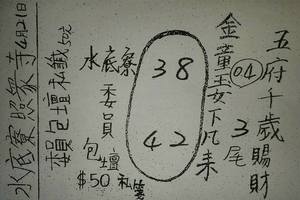 五府千歲賜財
3尾
金童玉女下凡來
04
38
42
水底寮
委員
包壇
$50 私簽
賴包壇私籤50元
水底寮照眾寺4月21日